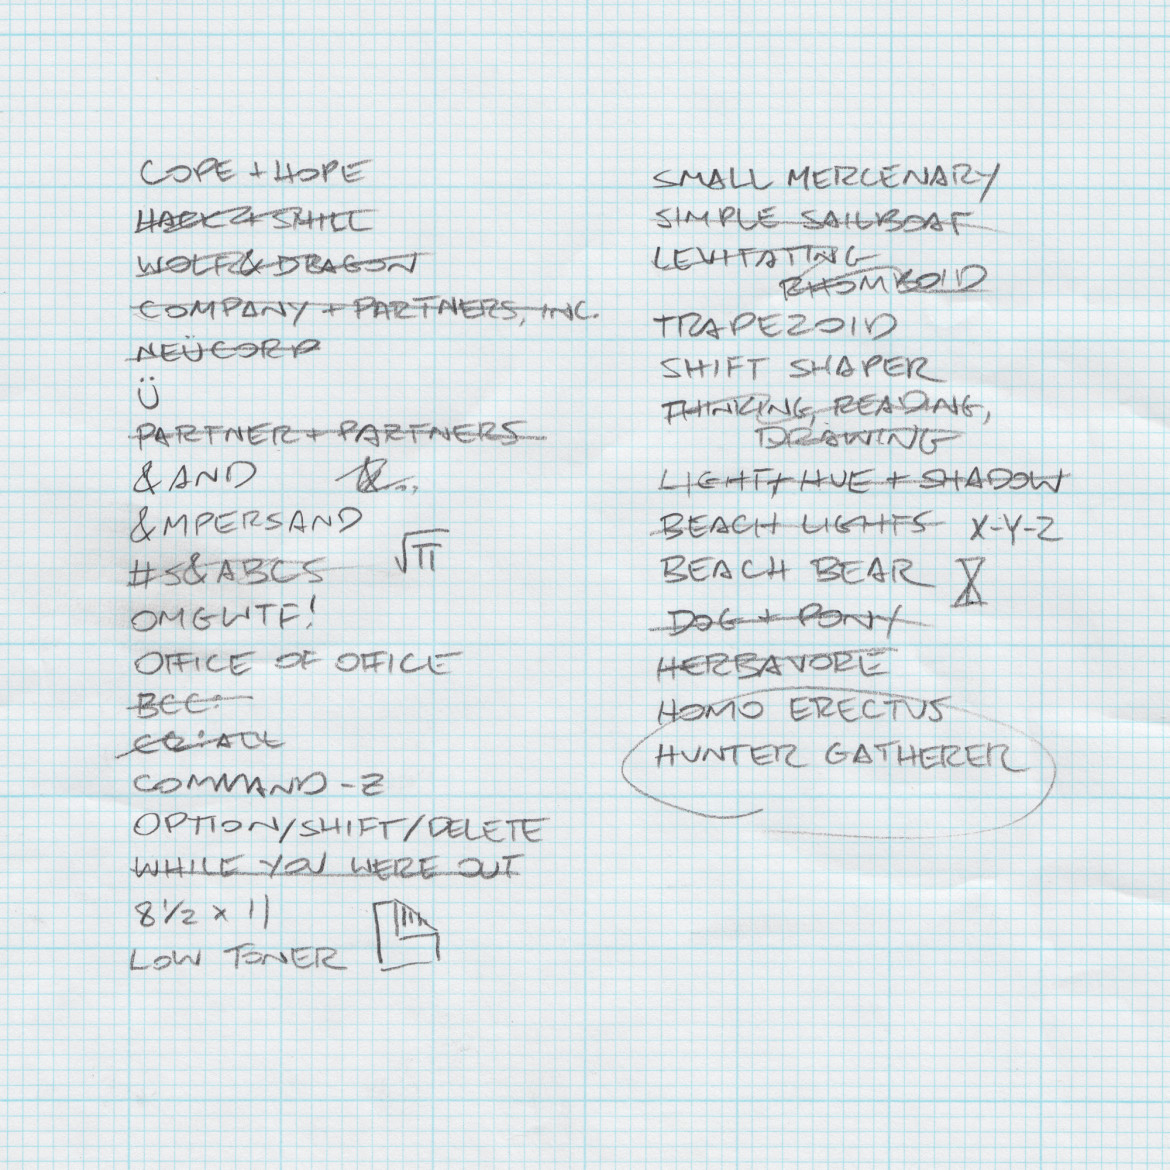 COPE + HOPE
HACK + SHILL
WOLF & DRAGON
COMPANY + PARTNERS, INC.
NEÜCORP
Ü
PARTNER + PARTNERS
& AND &...
&MPERSAND
√π
#S&ABCS
OMGWTF!
OFFICE OF OFFICE
BCC:
CR:ALL
COMMAND-Z
OPTION/SHIFT/DELETE
WHILE YOU WERE OUT
8 1/2 x 11
LOW TONER
SMALL MERCENARY
SIMPLE SAILBOAT
LEVITATING
RHOMBOID
TRAPEZOID
SHIFT SHAPER
THINKING, READING,
DRAWING
LIGHT, HUE + SHADOW
BEACH LIGHTS X-Y-Z
BEACH BEAR
DOG + PONY
HERBAVORE
HOMO ERECTUS
HUNTER GATHERER